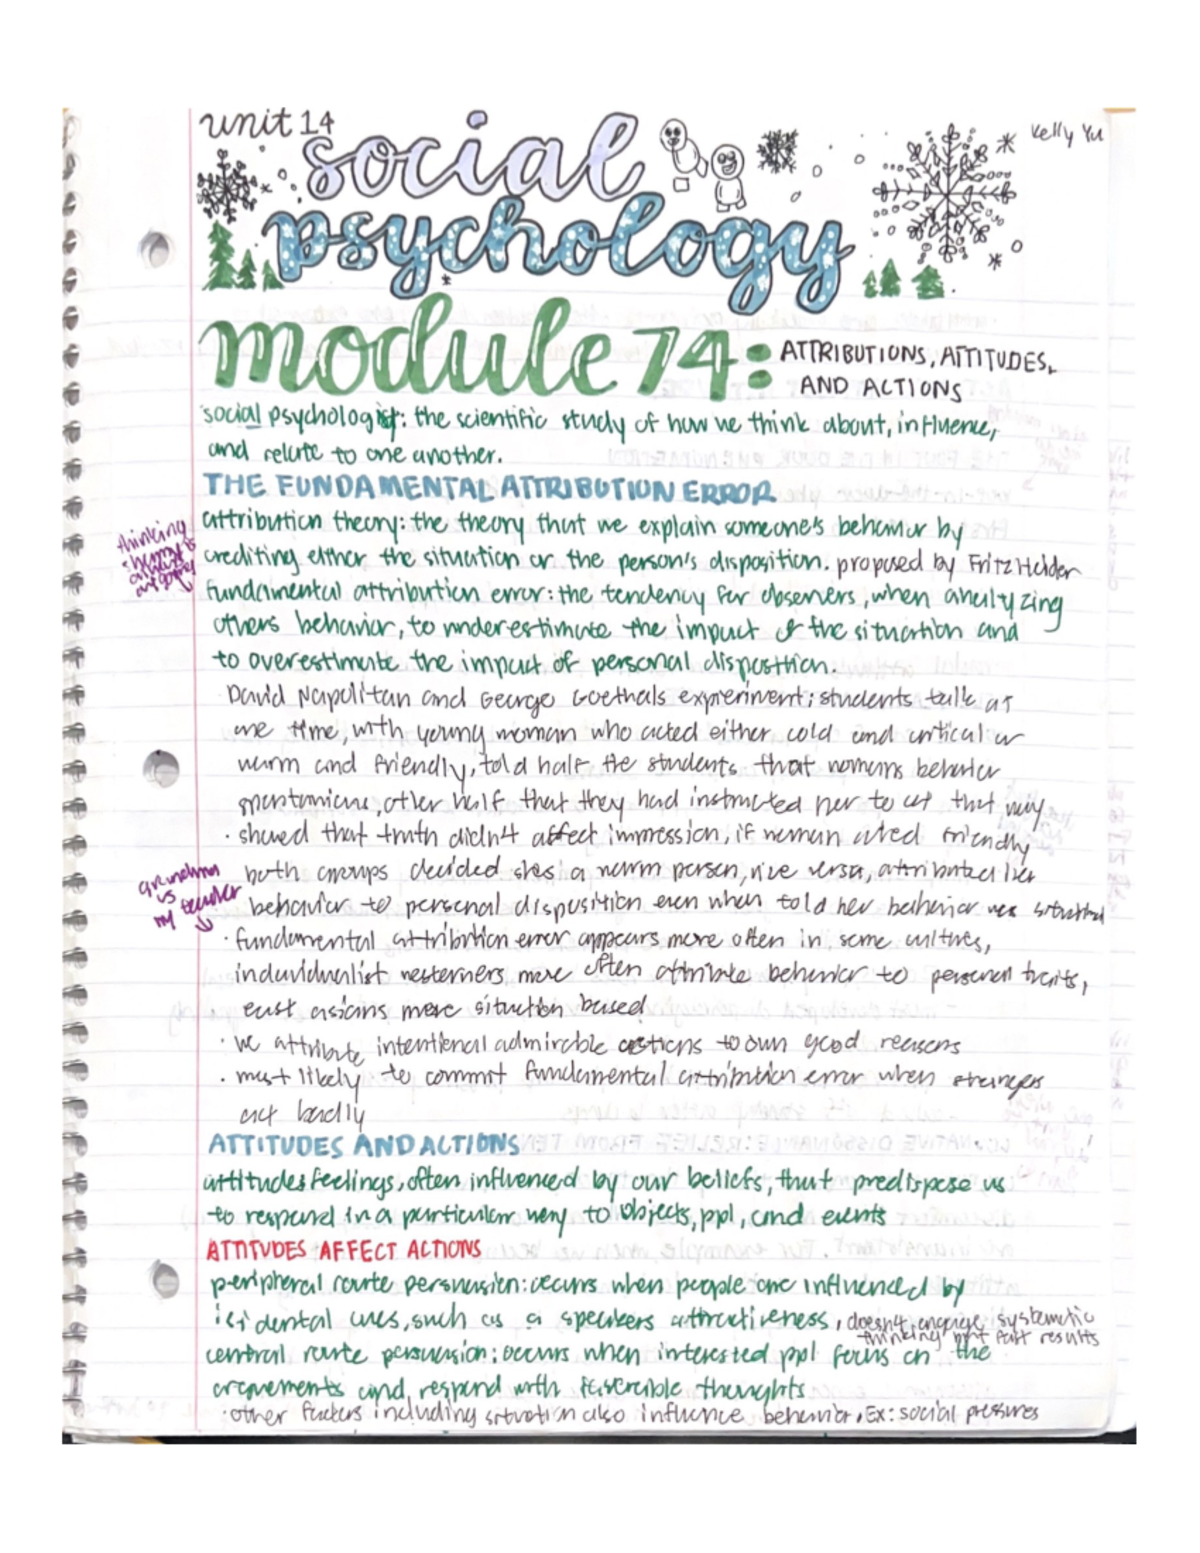 unit 14
Kelly Yu
social
psychology
module 74: ATTRIBUTIONS, ATTITUDES,
AND ACTIONS
social psychologist: the scientific study of how we think about, influence,
and relate to one another.
THE FUNDAMENTAL ATTRIBUTION ERROR
attribution theory: the theory that we explain someone's behavior by
thinking
crediting either the situation or the person's disposition. proposed by Fritz Heider
fundamental attribution error: the tendency for observers, when analyzing
others behavior, to underestimate the impact of the situation and
to overestimate the impact of personal disposition.
David Napolitan and George Goethals experiment: students talk at
one time, with young woman who acted either cold and critical or
warm and friendly, told half the students that womans behavior
spontanious, other half that they had instructed her to act that way
· showed that truth didn't affect impression, if woman acted friendly
both groups decided shes a warm person, vice versa, attributed her
grandma
vs
my teacher
behavior to personal disposition even when told her behavior was situational
· fundamental attribution error appears more often in some cultures,
individualist westerners more often attribute behavior to personal traits,
east asians more situation based
· we attribute intentional admirable actions to own good reasons
· most likely to commit fundamental attribution error when strangers
act badly
ATTITUDES AND ACTIONS
attitudes feelings, often influenced by our beliefs, that predispose us
to respond in a particular way to objects, ppl, and events
ATTITUDES AFFECT ACTIONS
peripheral route persuasion: occurs when people are influenced by
incidental cues, such as a speakers attractiveness, doesn't engage systematic
thinking but fast results
central route persuasion: occurs when interested ppl focus on the
arguements and respond with favorable thoughts
· other factors including situation also influence behavior, Ex: social pressures